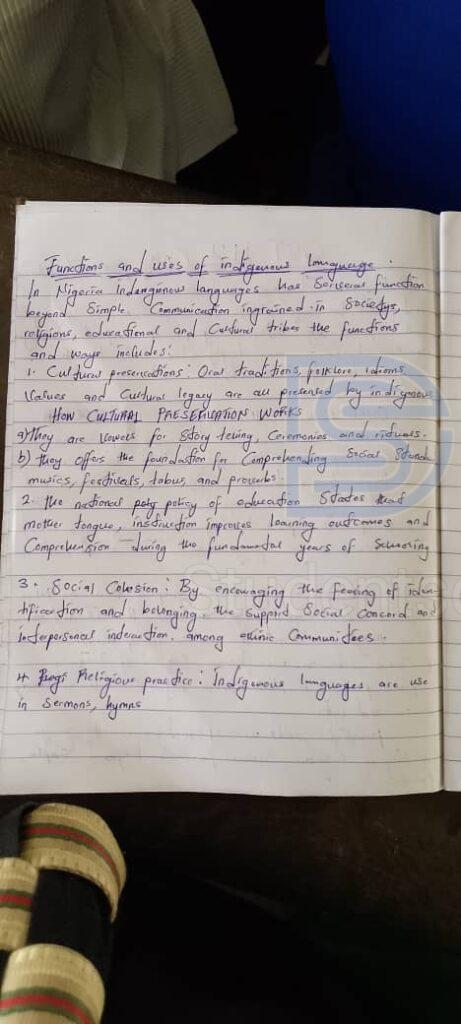 Functions and uses of indigenous language.
In Nigeria Indengenous languages has Serveral function
beyond Simple Communication ingrained in Societys,
religions, educational and Cultural tribes the functions
and ways includes:
1. Cultural preservations: Oral traditions, folklore, idioms
Values and Cultural legacy are all preserved by indigenous
HOW CULTURAL PRESERVATION WORKS
a) They are for Story telling, Ceremonies and rituals.
b) They offers the foundation for Comprehending Social
musics, festivals, tabus, and proverbs.
2. The national policy of education States that
mother tongue, instruction improves learning outcomes and
Comprehension during the fundamental years of Schooling
3. Social Cohesion: By encouraging the feeling of iden-
tification and belonging, the Support Social Concord and
interpersonal interaction, among ethnic Communities.
4 Religious practice: Indigenous languages are use
in Sermons, hymns